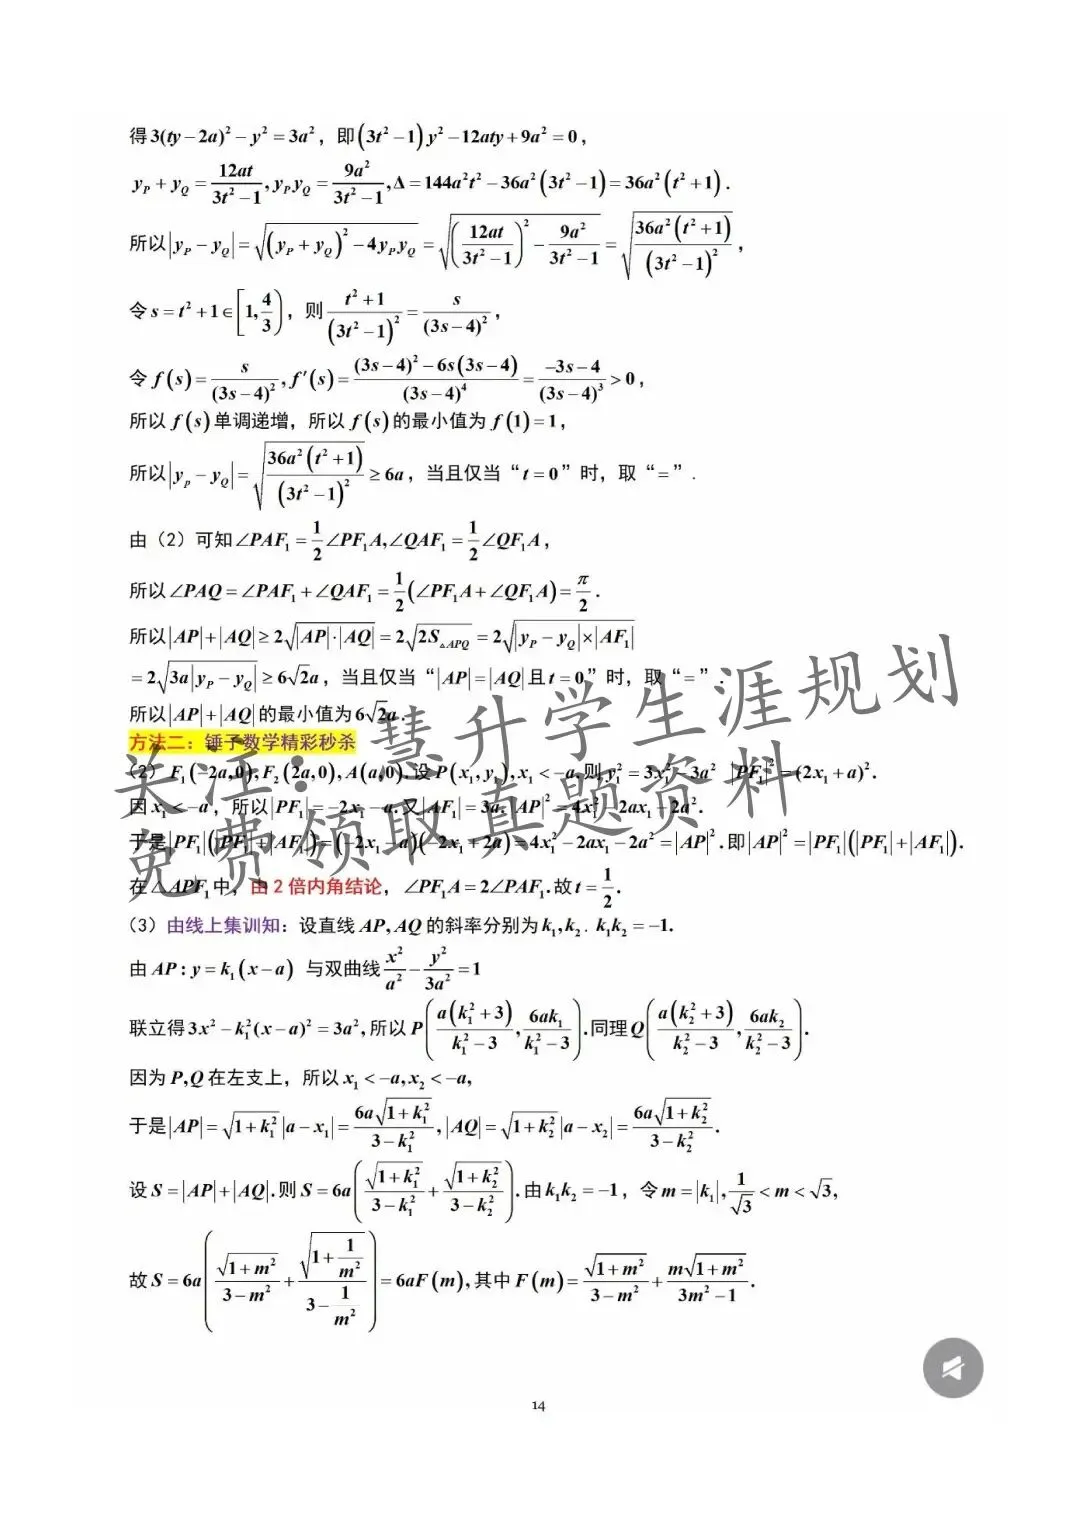 得3(ty−2a)²−y²=3a²，即(3t²−1)y²−12aty+9a²=0，
y_P+y_Q=12at/(3t²−1), y_P y_Q=9a²/(3t²−1), Δ=144a²t²−36a²(3t²−1)=36a²(t²+1).
所以|y_P−y_Q|=√((y_P+y_Q)²−4y_P y_Q)=√((12at/(3t²−1))²−9a²/(3t²−1))=√(36a²(t²+1)/(3t²−1)²)，
令s=t²+1∈[1,4/3)，则(t²+1)/(3t²−1)²=s/(3s−4)²，
令f(s)=s/(3s−4)², f′(s)=((3s−4)²−6s(3s−4))/(3s−4)⁴=(−3s−4)/(3s−4)³>0，
所以f(s)单调递增，所以f(s)的最小值为f(1)=1，
所以|y_P−y_Q|=√(36a²(t²+1)/(3t²−1)²)≥6a，当且仅当“t=0”时，取“=”.
由（2）可知∠PAF₁=1/2∠PF₁A,∠QAF₁=1/2∠QF₁A，
所以∠PAQ=∠PAF₁+∠QAF₁=1/2(∠PF₁A+∠QF₁A)=π/2.
所以|AP|+|AQ|≥2√(|AP|·|AQ|)=2√(2S_△APQ)=2√(|y_P−y_Q|×|AF₁|)
=2√(3a|y_P−y_Q|)≥6√2a，当且仅当“|AP|=|AQ|且t=0”时，取“=”.
所以|AP|+|AQ|的最小值为6√2a.
方法二：锤子数学精彩秒杀
（2）F₁(−2a,0),F₂(2a,0),A(a,0).设P(x₁,y₁),x₁<−a,则y₁²=3x₁²−3a² |PF₁|²=(2x₁+a)².
因x₁<−a，所以|PF₁|=−2x₁−a.又|AF₁|=3a,|AP|²=4x₁²−2ax₁−2a².
于是|PF₁|(|PF₁|+|AF₁|)=(−2x₁−a)(−2x₁+2a)=4x₁²−2ax₁−2a²=|AP|².即|AP|²=|PF₁|(|PF₁|+|AF₁|).
在△APF₁中，由2倍内角结论，∠PF₁A=2∠PAF₁.故t=1/2.
（3）由线上集训知：设直线AP,AQ的斜率分别为k₁,k₂. k₁k₂=−1.
由AP:y=k₁(x−a) 与双曲线x²/a²−y²/3a²=1
联立得3x²−k₁²(x−a)²=3a²,所以P(a(k₁²+3)/(k₁²−3), 6ak₁/(k₁²−3)).同理Q(a(k₂²+3)/(k₂²−3), 6ak₂/(k₂²−3)).
因为P,Q在左支上，所以x₁<−a,x₂<−a,
于是|AP|=√(1+k₁²)|a−x₁|=6a√(1+k₁²)/(3−k₁²),|AQ|=√(1+k₂²)|a−x₂|=6a√(1+k₂²)/(3−k₂²).
设S=|AP|+|AQ|.则S=6a(√(1+k₁²)/(3−k₁²)+√(1+k₂²)/(3−k₂²)).由k₁k₂=−1，令m=|k₁|,1/√3<m<√3,
故S=6a(√(1+m²)/(3−m²)+√(1+1/m²)/(3−1/m²))=6aF(m),其中F(m)=√(1+m²)/(3−m²)+m√(1+m²)/(3m²−1).
关注：慧升学生涯规划
免费领取真题资料
14